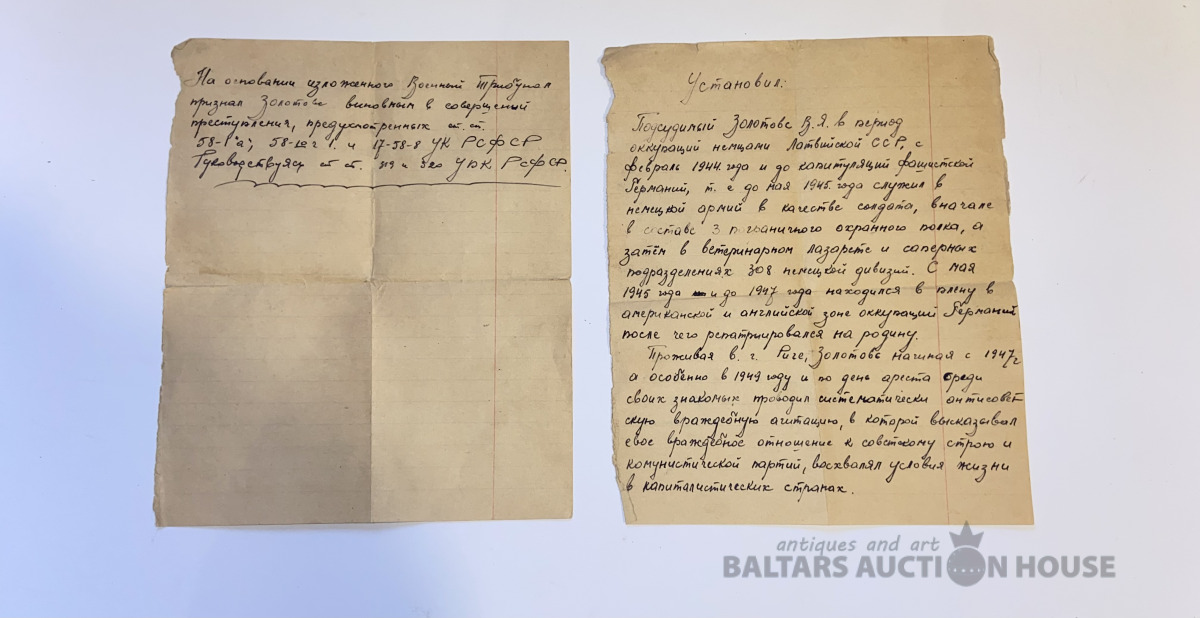 На основании изложенного Военный Трибунал
признал Золотовс виновным в совершений
преступления, предусмотренных ст. ст.
58-1"а", 58-10 ч 1. и 17-58-8 УК РСФСР
Руководствуясь ст ст. 319 и 320 УПК РСФСР.
Установил:
Подсудимый Золотовс В.Я. в период
оккупаций немцами Латвийской ССР, с
февраль 1944 года и до капитуляций фашистской
Германий, т. е до мая 1945 года служил в
немецкой армий в качестве солдата, вначале
в составе 3 пограничного охранного полка, а
затем в ветеринарном лазарете и саперных
подразделениях 308 немецкой дивизий. С мая
1945 года и до 1947 года находился в плену в
американской и английской зоне оккупаций Германий
после чего репатриировался на родину.
Проживая в. г. Риге, Золотовс начиная с 1947 г
а особенно в 1949 году и по день ареста среди
своих знакомых проводил систематически антисовет
скую враждебную агитацию, в которой высказывал
свое враждебное отношение к советскому строю и
комунистической партий, восхвалял условия жизни
в капиталистических странах.
antiques and art
BALTARS AUCTION HOUSE